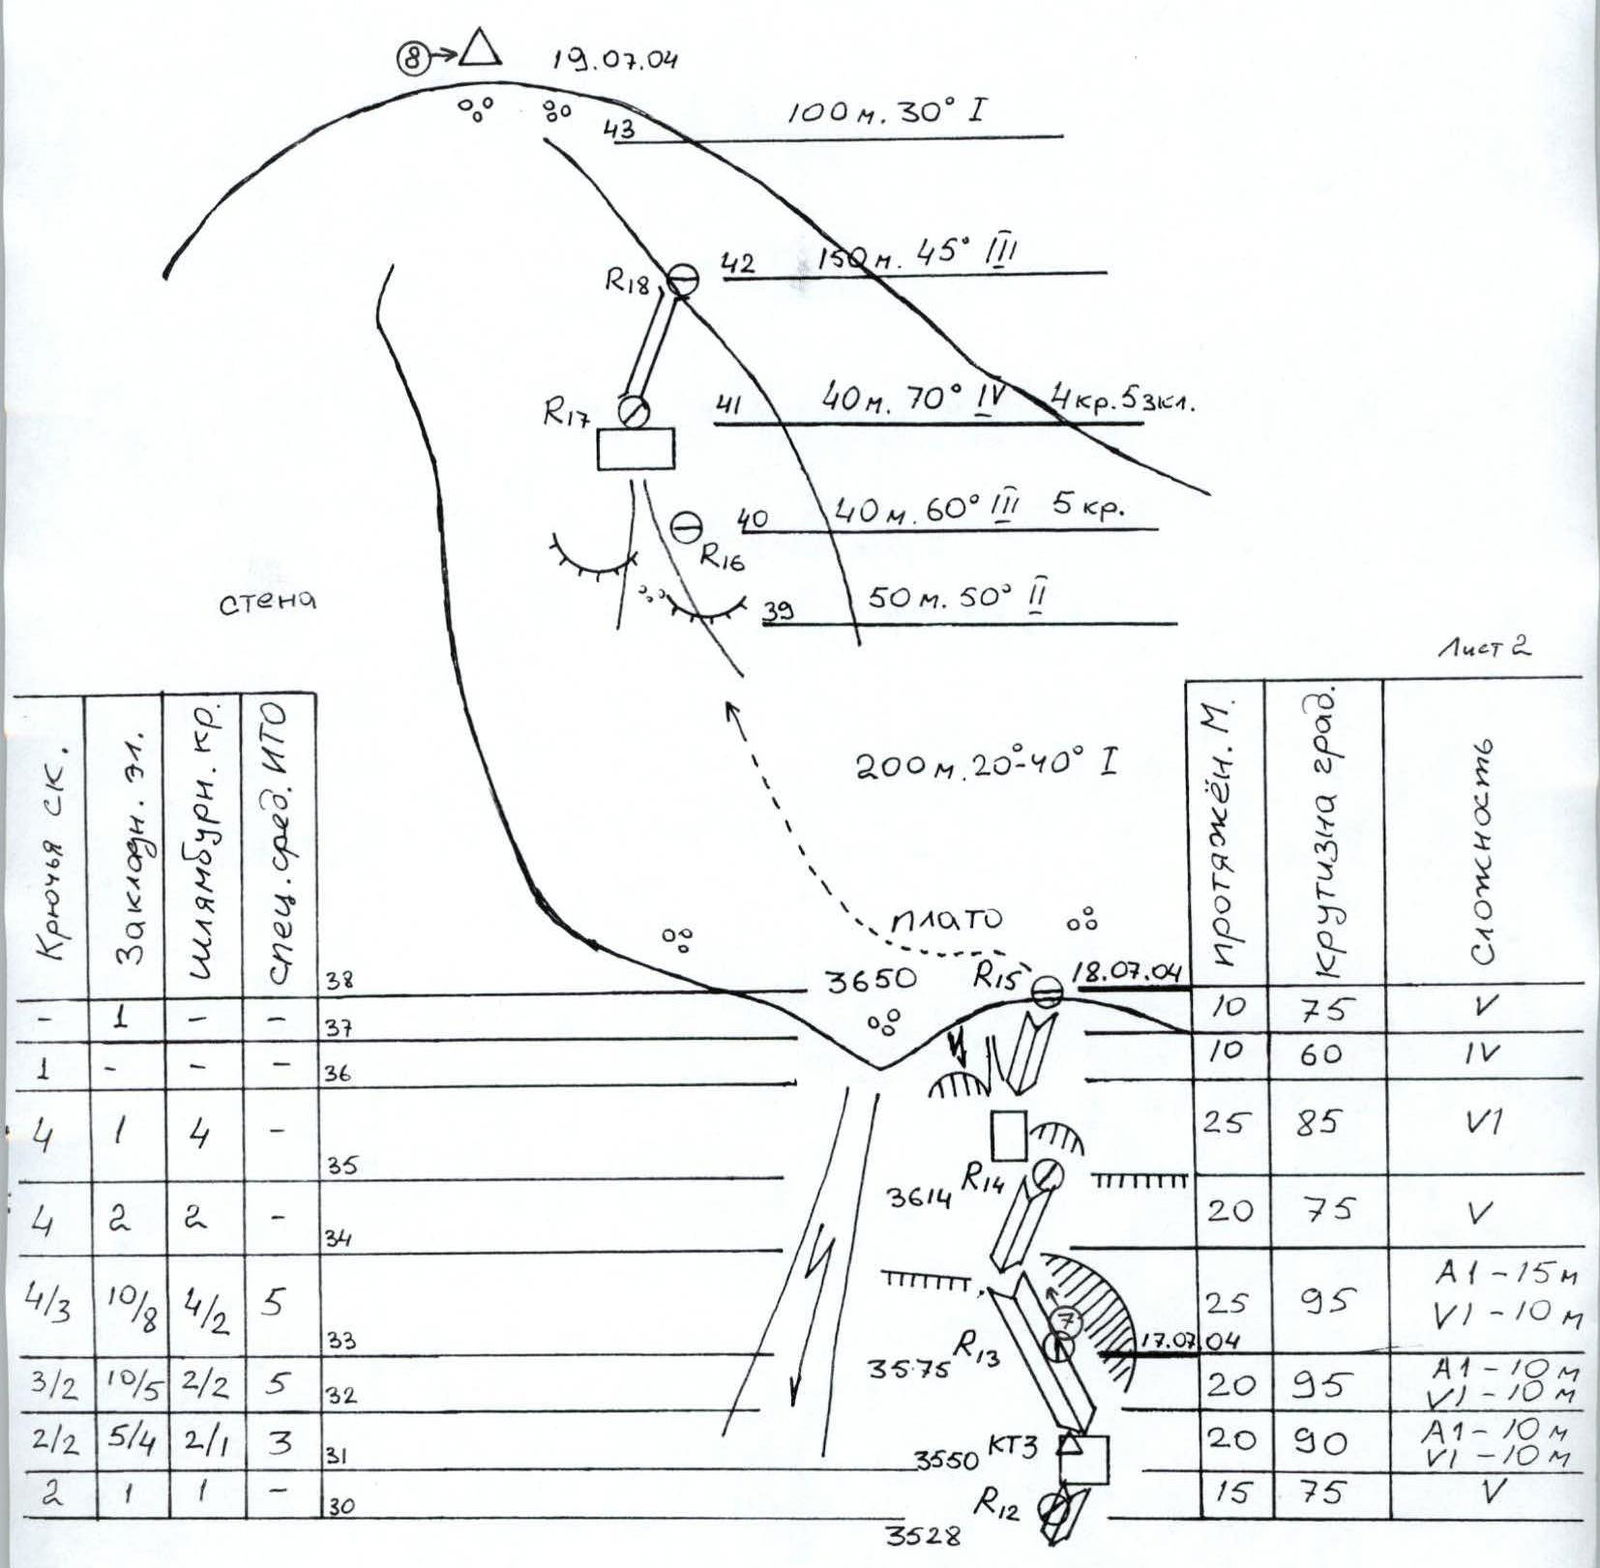 8 19.07.04
43 100 м. 30° I
R18 42 150 м. 45° III
R17 41 40 м. 70° IV 4 кр. 5 зкл.
40 40 м. 60° III 5 кр.
R16
39 50 м. 50° II
стена
Лист 2
200 м. 20°-40° I
Крючья ск. Закладн. эл. Шлямбурн. кр. спец. сред. ИТО
протяжён. М. крутизна град. Сложность
плато
38 3650 R15 18.07.04
- 1 - - 37 10 75 V
1 - - - 36 10 60 IV
4 1 4 - 35 25 85 VI
3614 R14
4 2 2 - 34 20 75 V
4/3 10/8 4/2 5 33 25 95 А1 - 15 м
VI - 10 м
7
3575 R13 17.07.04
3/2 10/5 2/2 5 32 20 95 А1 - 10 м
VI - 10 м
2/2 5/4 2/1 3 31 20 90 А1 - 10 м
VI - 10 м
3550 КТ3
2 1 1 - 30 15 75 V
R12
3528